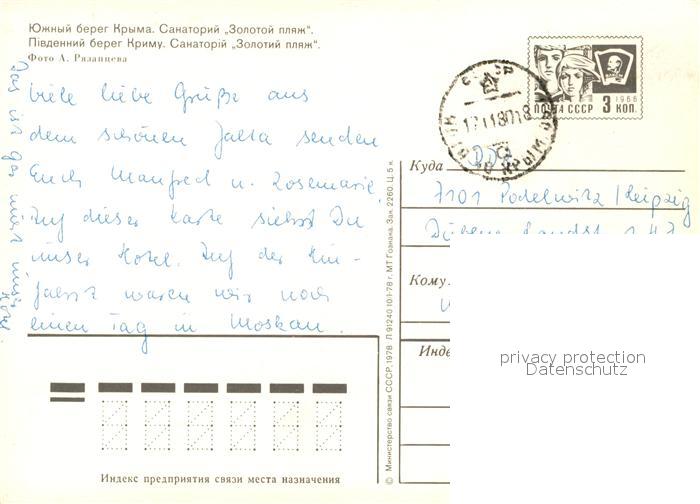 Южный берег Крыма. Санаторий „Золотой пляж“.
Південний берег Криму. Санаторій „Золотий пляж“.
Фото А. Рязанцева
Viele liebe Grüße aus
dem schönen Jalta senden
Euch Manfred u. Rosemarie.
Auf dieser Karte siehst Du
unser Hotel. Auf der Hin-
fahrt waren wir noch
einen Tag in Moskau.
Das ist gar nicht unser
ПОЧТА СССР 3 КОП.
1966
Куда DDR
7101 Podelwitz / Leipzig
Кому
Инде
privacy protection
Datenschutz
Индекс предприятия связи места назначения
© Министерство связи СССР, 1978 Л 91240 10·1·78 г. МТ Гознака. Зак. 2260. Ц. 5 к.